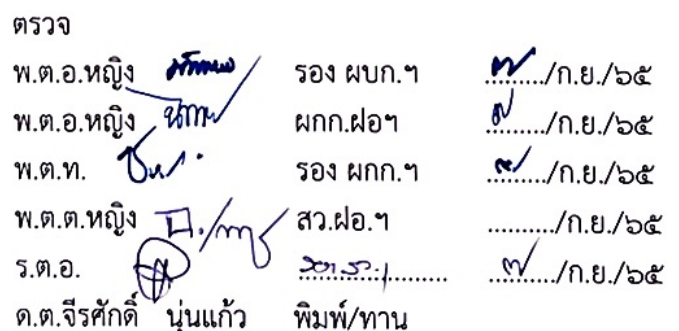 ตรวจ
พ.ต.อ.หญิง รอง ผบก.ฯ ๗/ก.ย./๖๕
พ.ต.อ.หญิง ผกก.ฝอฯ ๗/ก.ย./๖๕
พ.ต.ท. รอง ผกก.ฯ ๗/ก.ย./๖๕
พ.ต.ต.หญิง สว.ฝอ.ฯ ........../ก.ย./๖๕
ร.ต.อ. ๗/ก.ย./๖๕
ด.ต.จีรศักดิ์ นุ่นแก้ว พิมพ์/ทาน